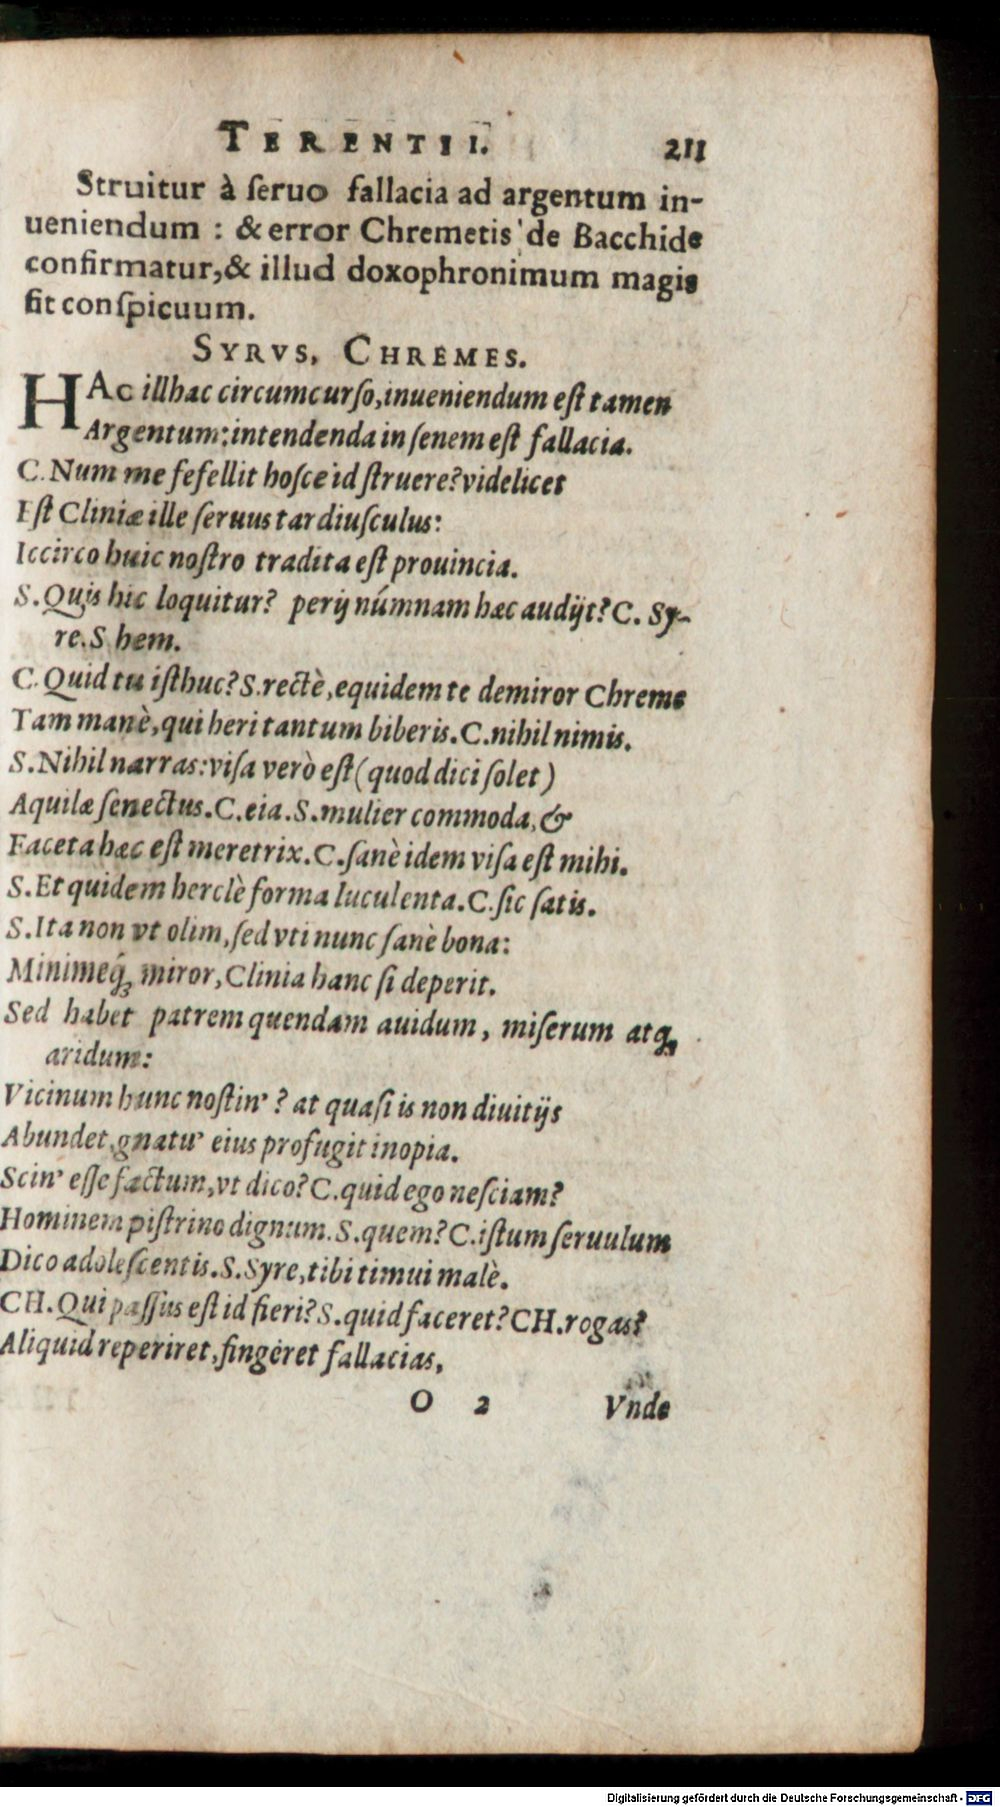 TERENTII. 211
Struitur à ſeruo fallacia ad argentum in-
ueniendum : & error Chremetis de Bacchide
confirmatur,& illud doxophronimum magis
fit conſpicuum.
SYRVS, CHREMES.
HAc illhac circumcurſo,inueniendum eſt tamen
Argentum:intendenda in ſenem eſt fallacia.
C.Num me fefellit hoſce id ſtruere?videlicet
Eſt Cliniæ ille ſeruus tardiuſculus:
Iccirco huic noſtro tradita eſt prouincia.
S.Quis hic loquitur? perij númnam hæc audijt?C. Sy-
re.S hem.
C.Quid tu iſthuc?S.rectè,equidem te demiror Chreme
Tam manè,qui heri tantum biberis.C.nihil nimis.
S.Nihil narras:viſa verò eſt(quod dici ſolet)
Aquilæ ſenectus.C.eia.S.mulier commoda,&
Faceta hæc eſt meretrix.C.ſanè idem viſa eſt mihi.
S.Et quidem herclè forma luculenta.C.ſic ſatis.
S.Ita non vt olim,ſed vti nunc ſanè bona:
Minimeq́; miror,Clinia hanc ſi deperit.
Sed habet patrem quendam auidum, miſerum atq;
aridum:
Vicinum hunc noſtin' ? at quaſi is non diuitijs
Abundet,gnatu' eius profugit inopia.
Scin' eſſe factum,vt dico?C.quid ego neſciam?
Hominem piſtrino dignum.S.quem?C.iſtum ſeruulum
Dico adoleſcentis.S.Syre,tibi timui malè.
CH.Qui paſſus eſt id fieri?S.quid faceret?CH.rogas?
Aliquid reperiret,fingeret fallacias,
O 2 Vnde
Digitalisierung gefördert durch die Deutsche Forschungsgemeinschaft - DFG